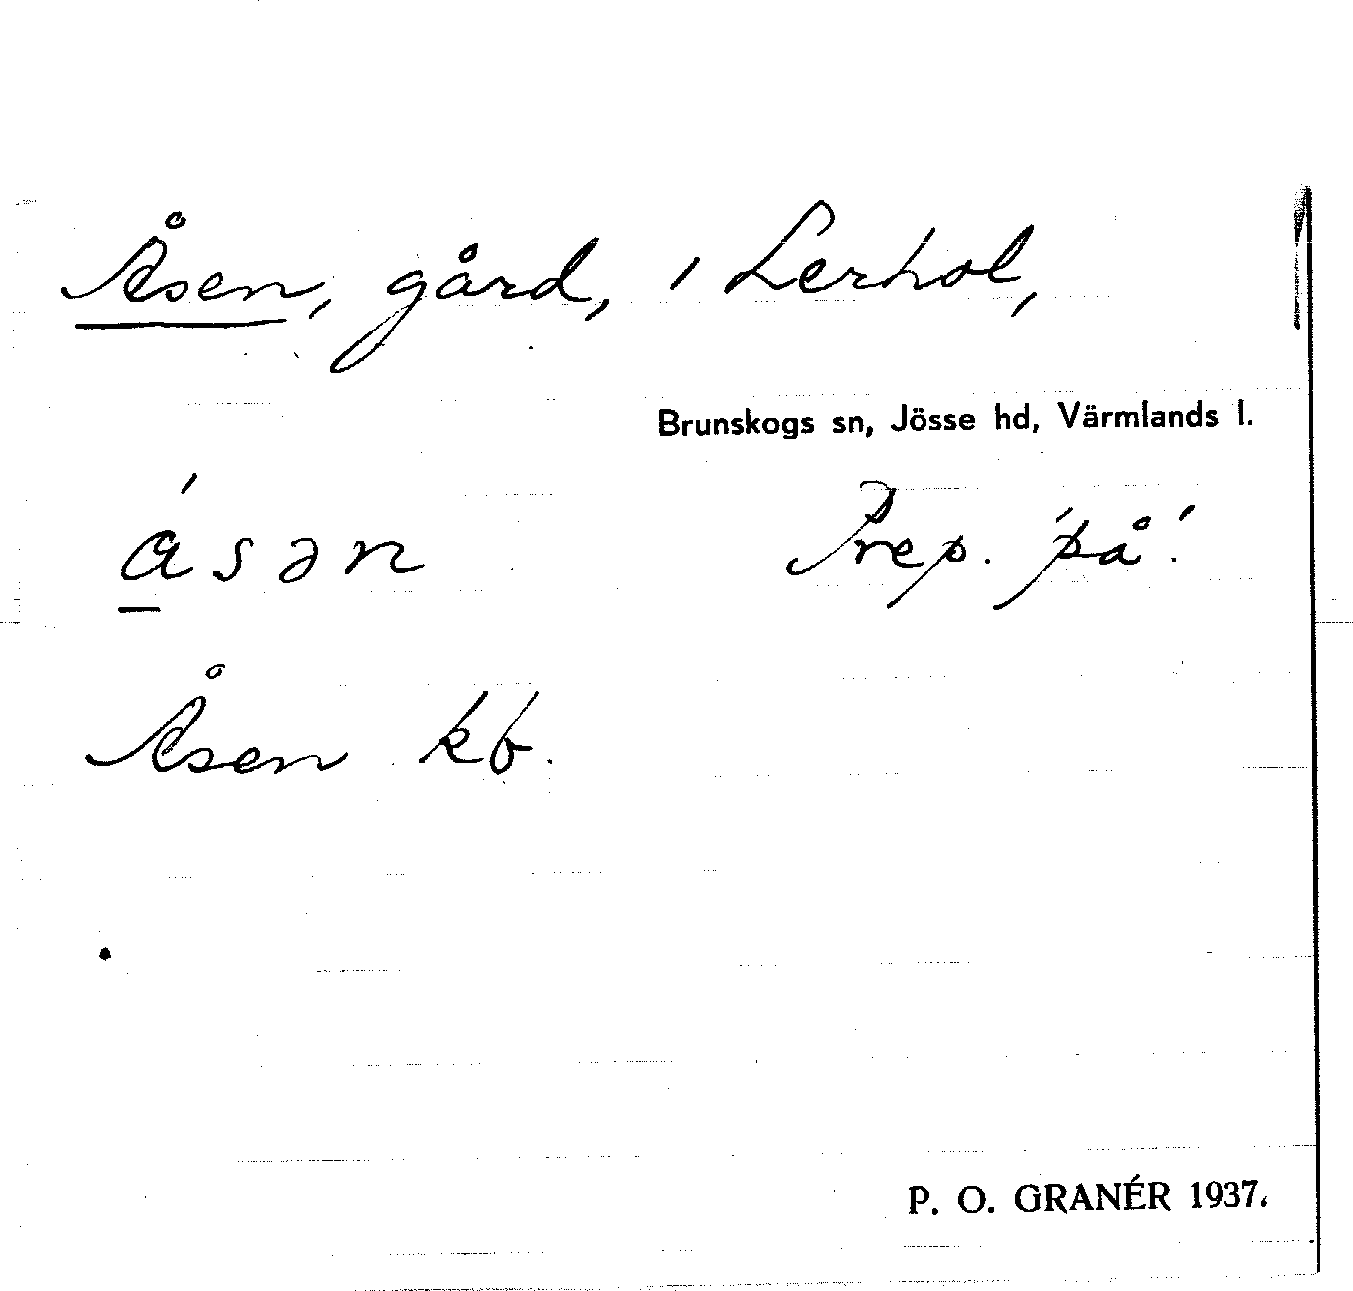 Åsen, gård, i Lerhol,
Brunskogs sn, Jösse hd, Värmlands l.
ásən Prep. 'på'.
Åsen kb.
P. O. GRANÉR 1937.